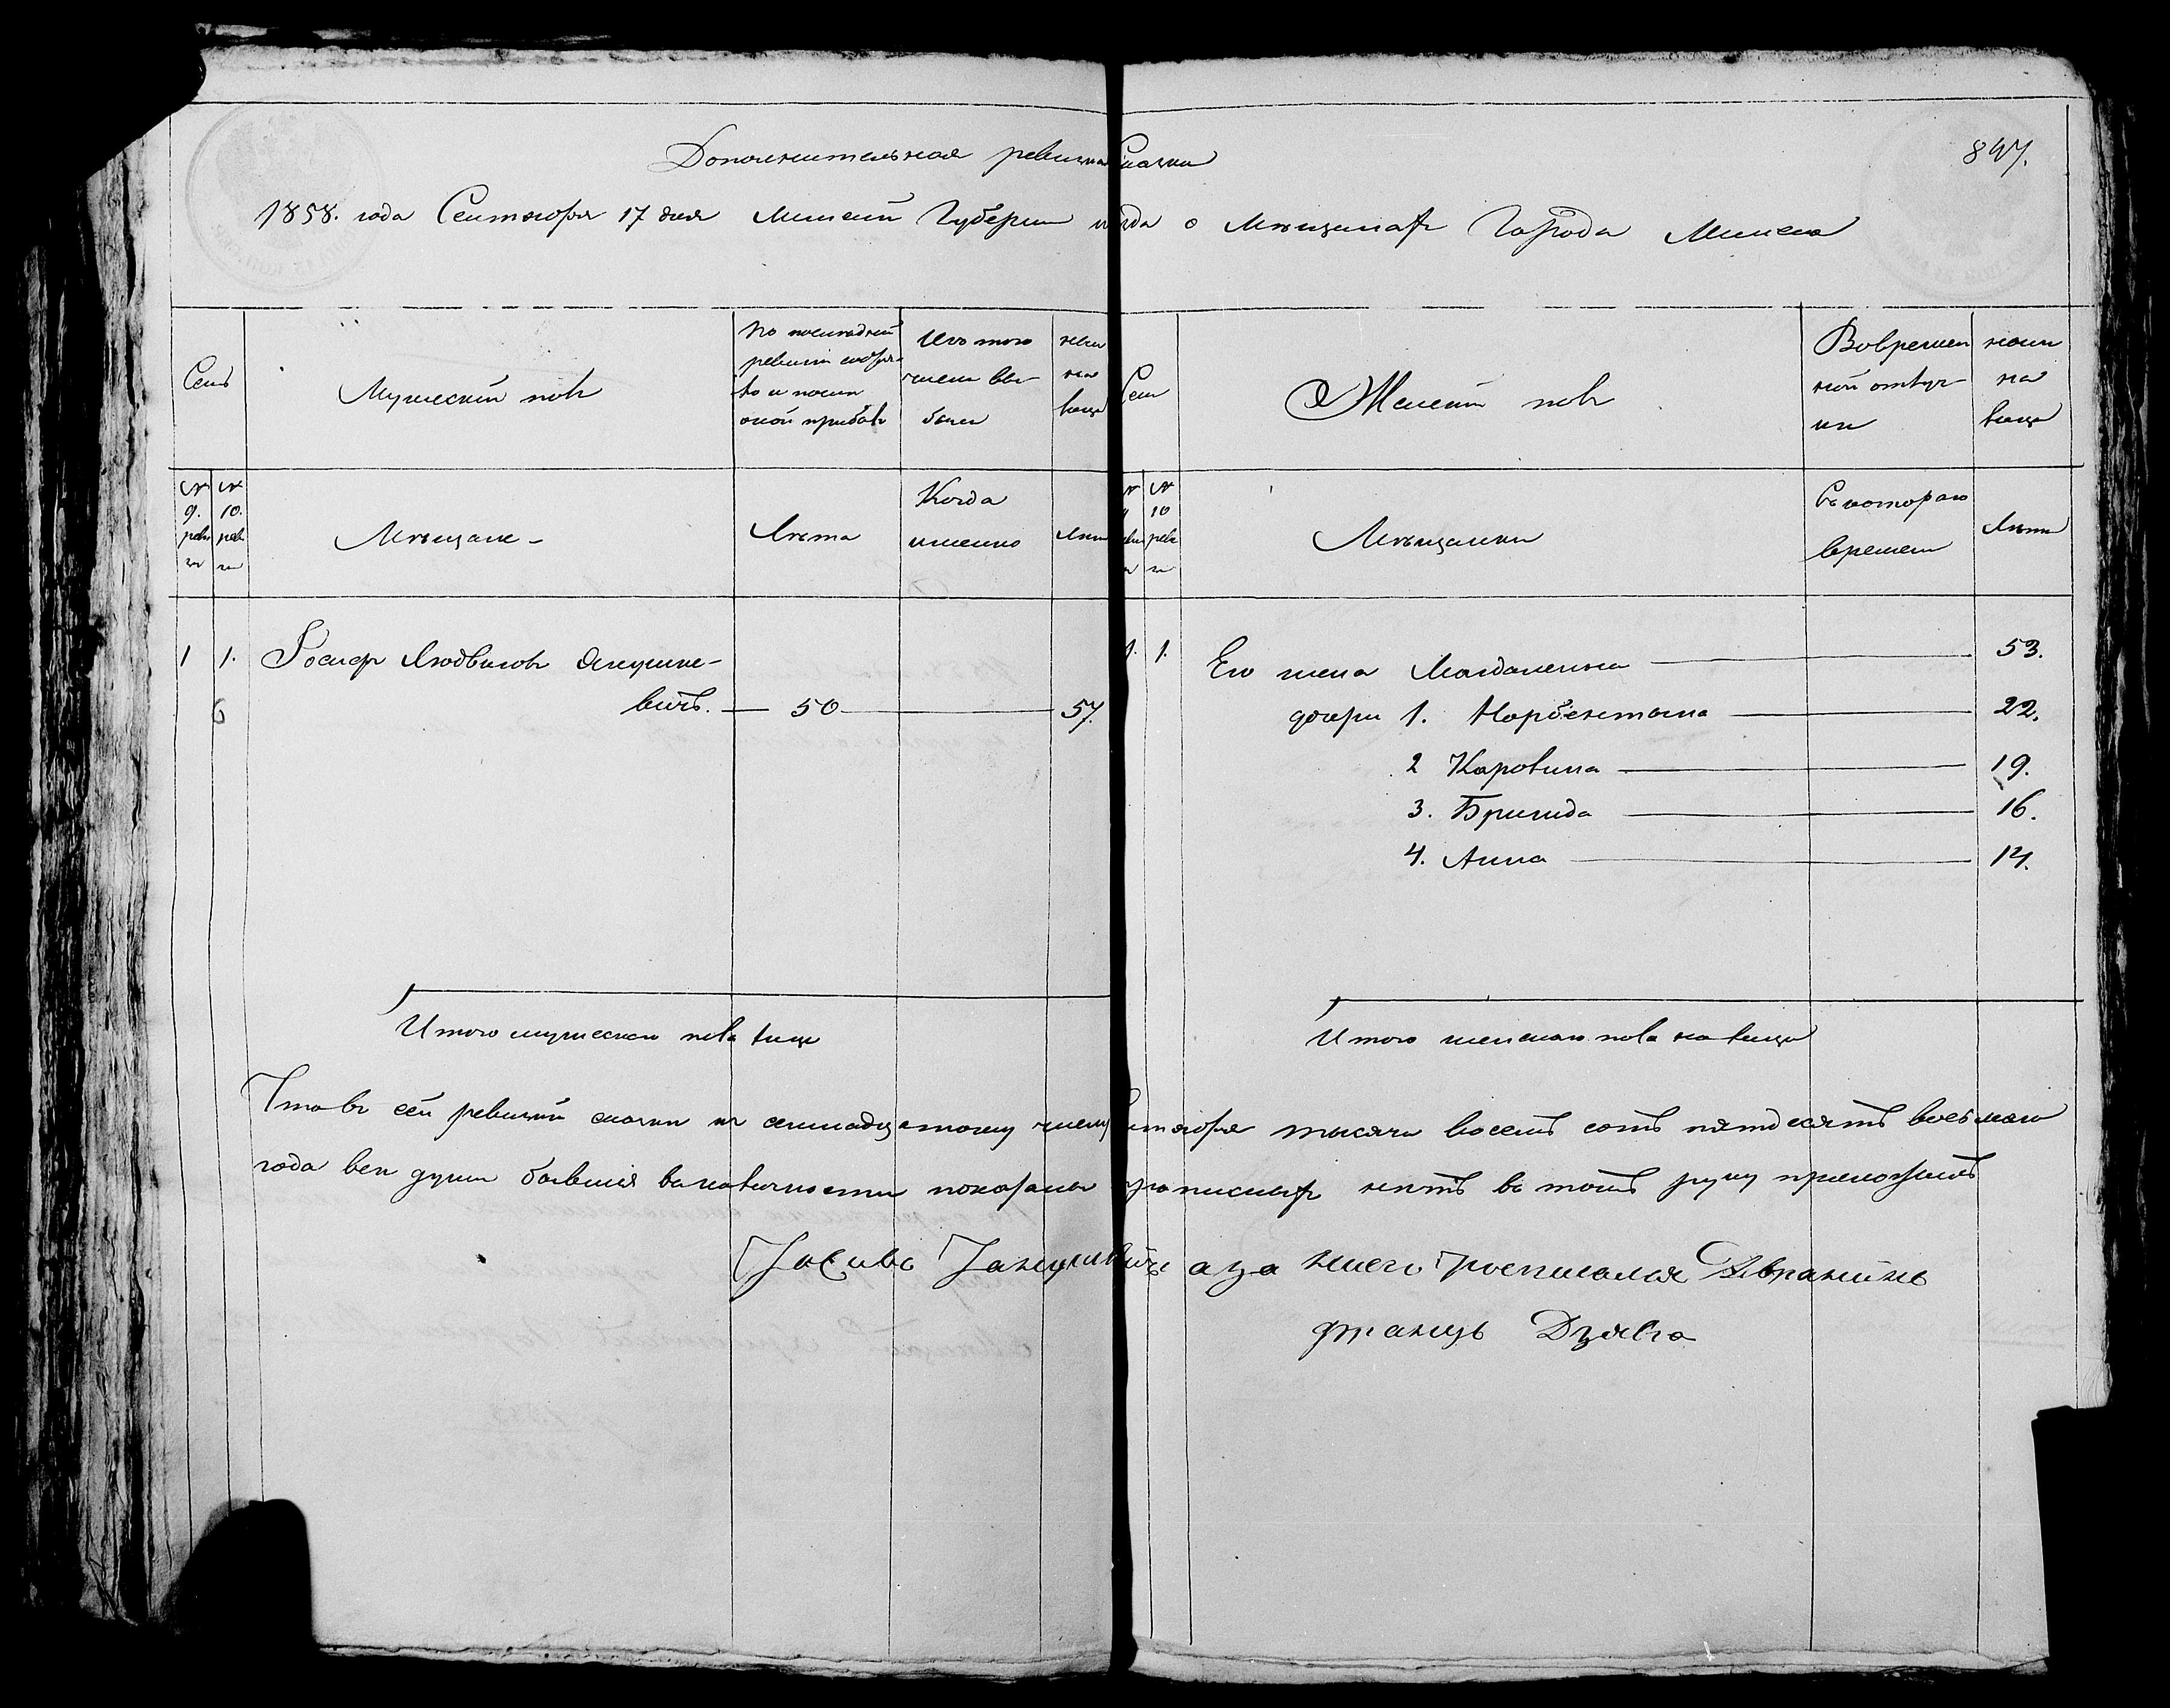 Дополнительная ревизка Сказка
847.
1858. года Сентября 17 дня Минской Губерни уезда о Мѣщанах Города Минска
Семь
Мужеский полъ
По последней ревизіи состоя- ло и после оной прибыло
Изъ того числа вы- было
ныне на лицо
Сем
Женский полъ
Во времен ной отлуч- ки
ныне на лицо
№ 9. реви зи
№ 10. реви зи
Мѣщане -
Лѣта
Когда именно
Лѣта
№ 10 реви зи
Мѣщанки
Съ котораго времени
Лѣта
1 1. Іосиф Людвиков Янушке-
6 вичъ. — 50 — 57.
1. 1. Его жена Магдалена — 53.
дочери 1. Норбентына — 22.
2 Каролина — 19.
3. Бригида — 16.
4. Анна — 14.
Итого мужеска пола лице
Итого женскаго пола на лице
Что въ сей ревизкой сказки къ семнадцатому числу Сентября тысяча восемь сотъ пятдесятъ восьмаго
года всеи души бывшія в наличности показаны прописных нетъ въ томъ руку приложилъ
Іосивъ Янушкевичъ а за него росписался Дворянинъ
францъ Дзявго